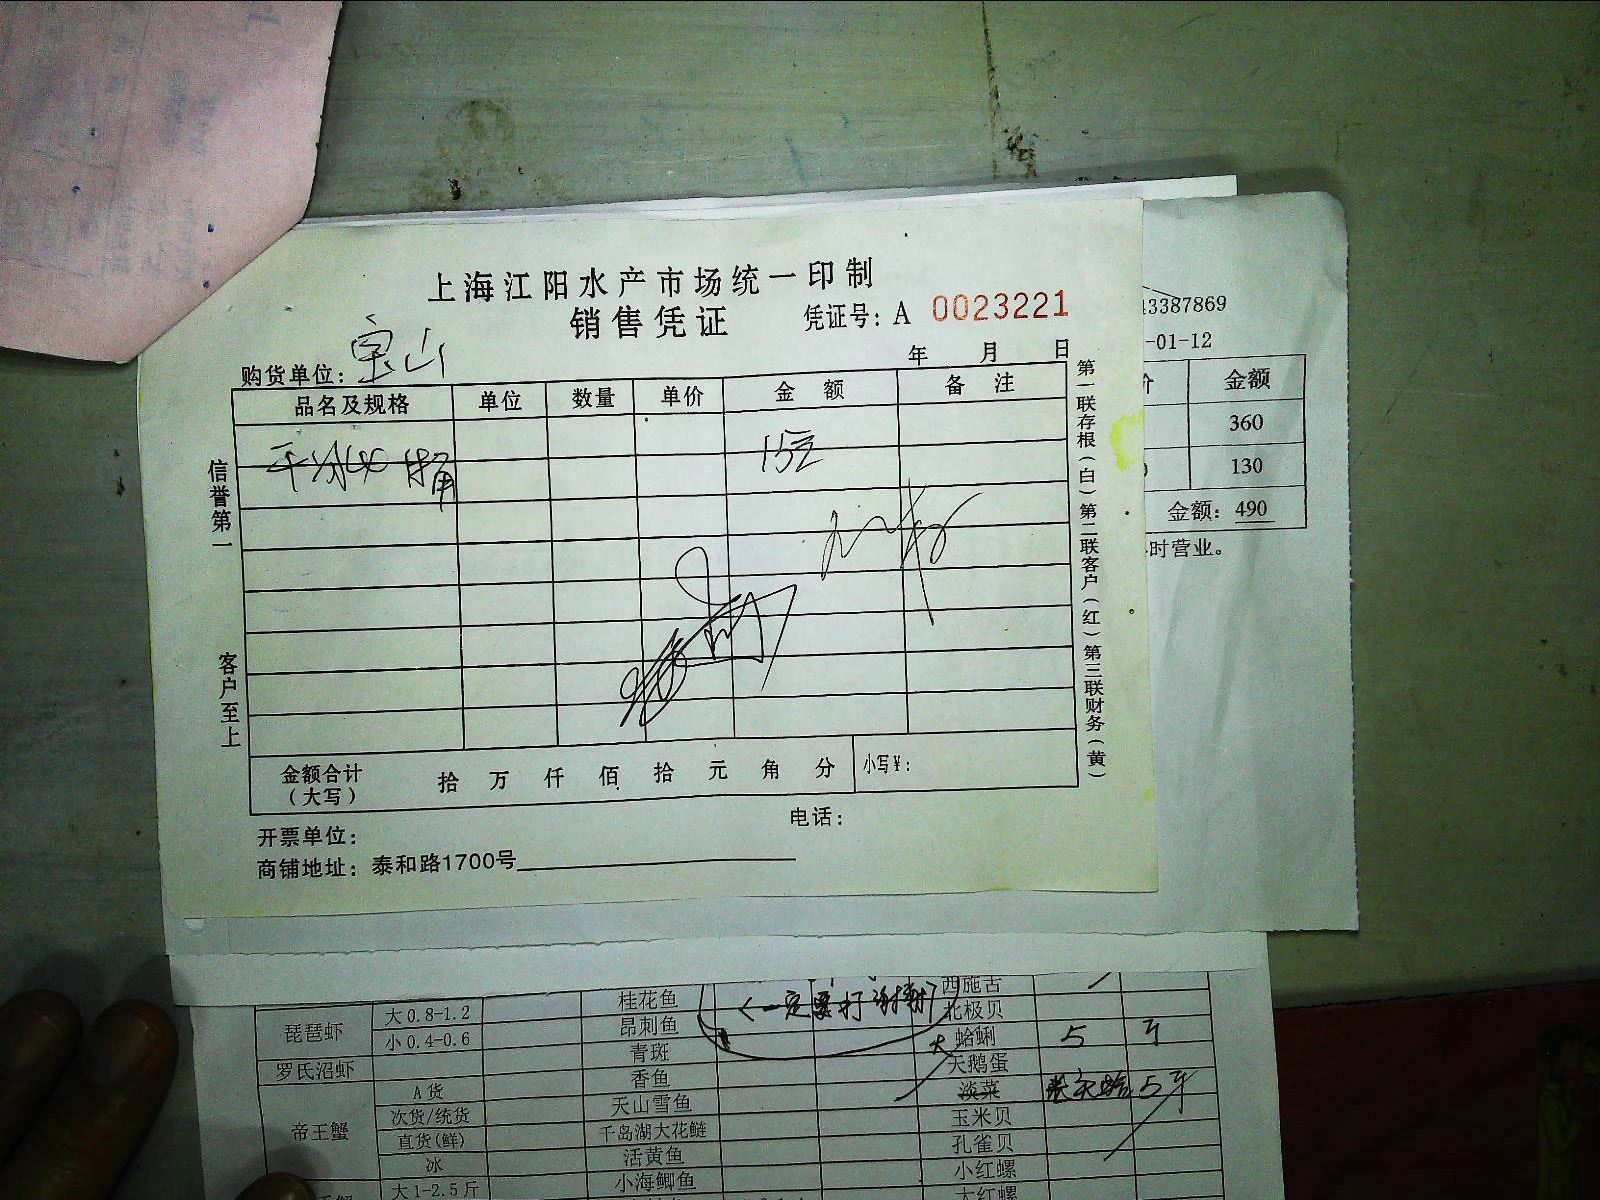 上海江阳水产市场统一印制
销售凭证 凭证号：A 0023221
年 月 日
购货单位：宝山
品名及规格 单位 数量 单价 金 额 备 注
15元
金额合计（大写） 拾 万 仟 佰 拾 元 角 分 小写¥：
开票单位： 电话：
商铺地址：泰和路1700号
信誉第一 客户至上
第一联存根（白）第二联客户（红）第三联财务（黄）
43387869
-01-12
金额
360
130
金额：490
时营业。
桂花鱼 <一定要打 西施舌
琵琶虾 大0.8-1.2 昂刺鱼 北极贝
小0.4-0.6 青斑 蛤蜊 5 斤
罗氏沼虾 香鱼 大 天鹅蛋
帝王蟹 A货 天山雪鱼 淡菜 5斤
次货/统货 千岛湖大花鲢 玉米贝
直货(鲜) 活黄鱼 孔雀贝
冰 小海鲫鱼 小红螺
大1-2.5斤 大红螺